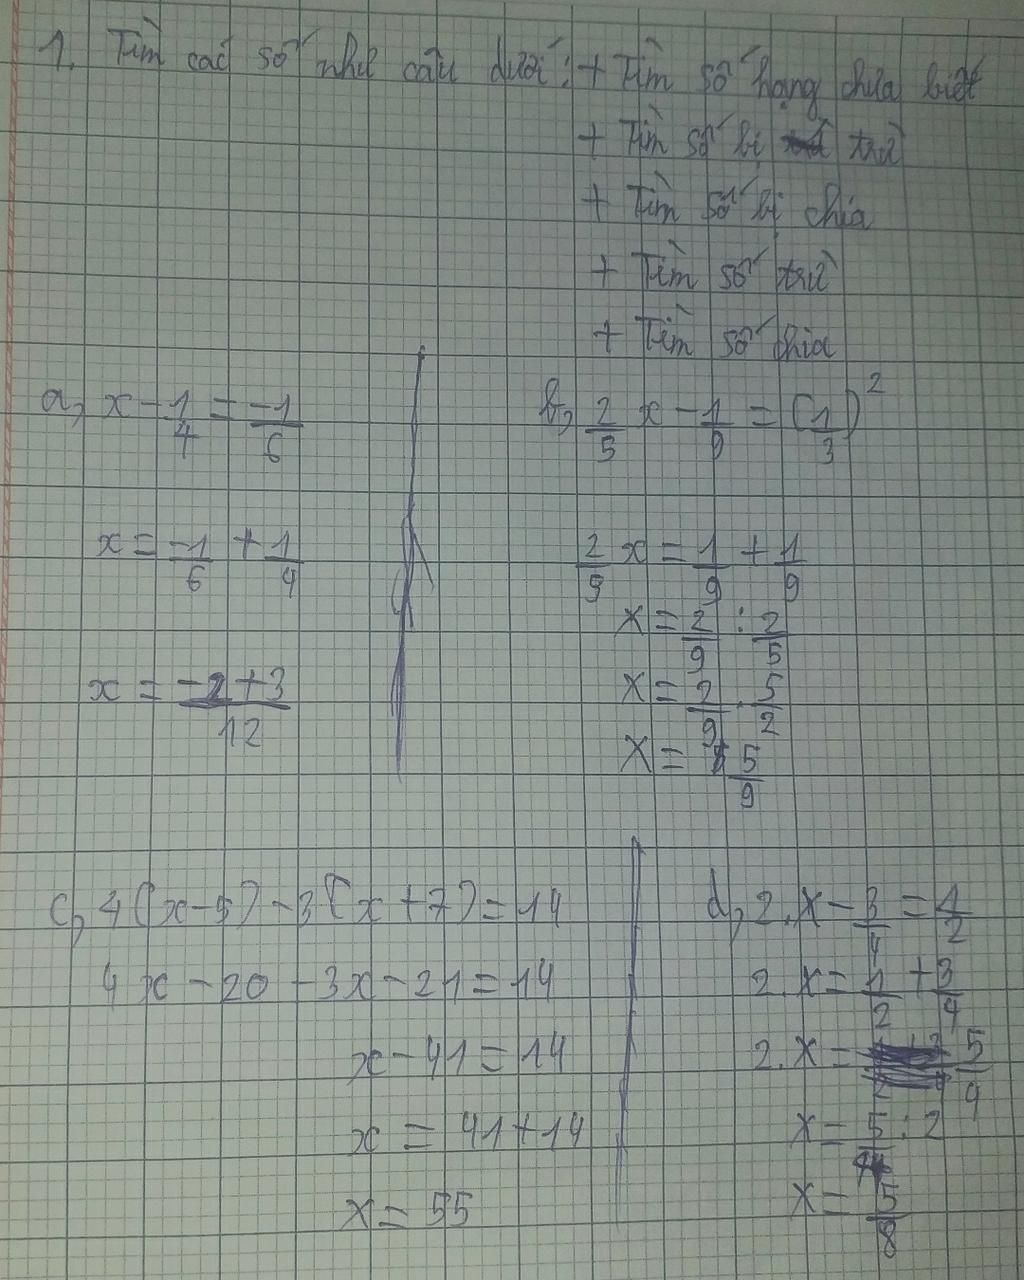 1. Tìm các số như câu dưới: + Tìm số hạng chưa biết
+ Tìm số bị trừ
+ Tìm số bị chia
+ Tìm số trừ
+ Tìm số chia
a, x - 1/4 = -1/6
x = -1/6 + 1/4
x = -2+3/12
b, 2/5 x - 1/9 = (1/3)²
2/5 x = 1/9 + 1/9
x = 2/9 : 2/5
x = 2/9 . 5/2
x = 5/9
c, 4(x-5) - 3(x+7) = 14
4x - 20 - 3x - 21 = 14
x - 41 = 14
x = 41 + 14
x = 55
d, 2. x - 3/4 = 1/2
2. x = 1/2 + 3/4
2. x = 5/4
x = 5/4 : 2
x = 5/8